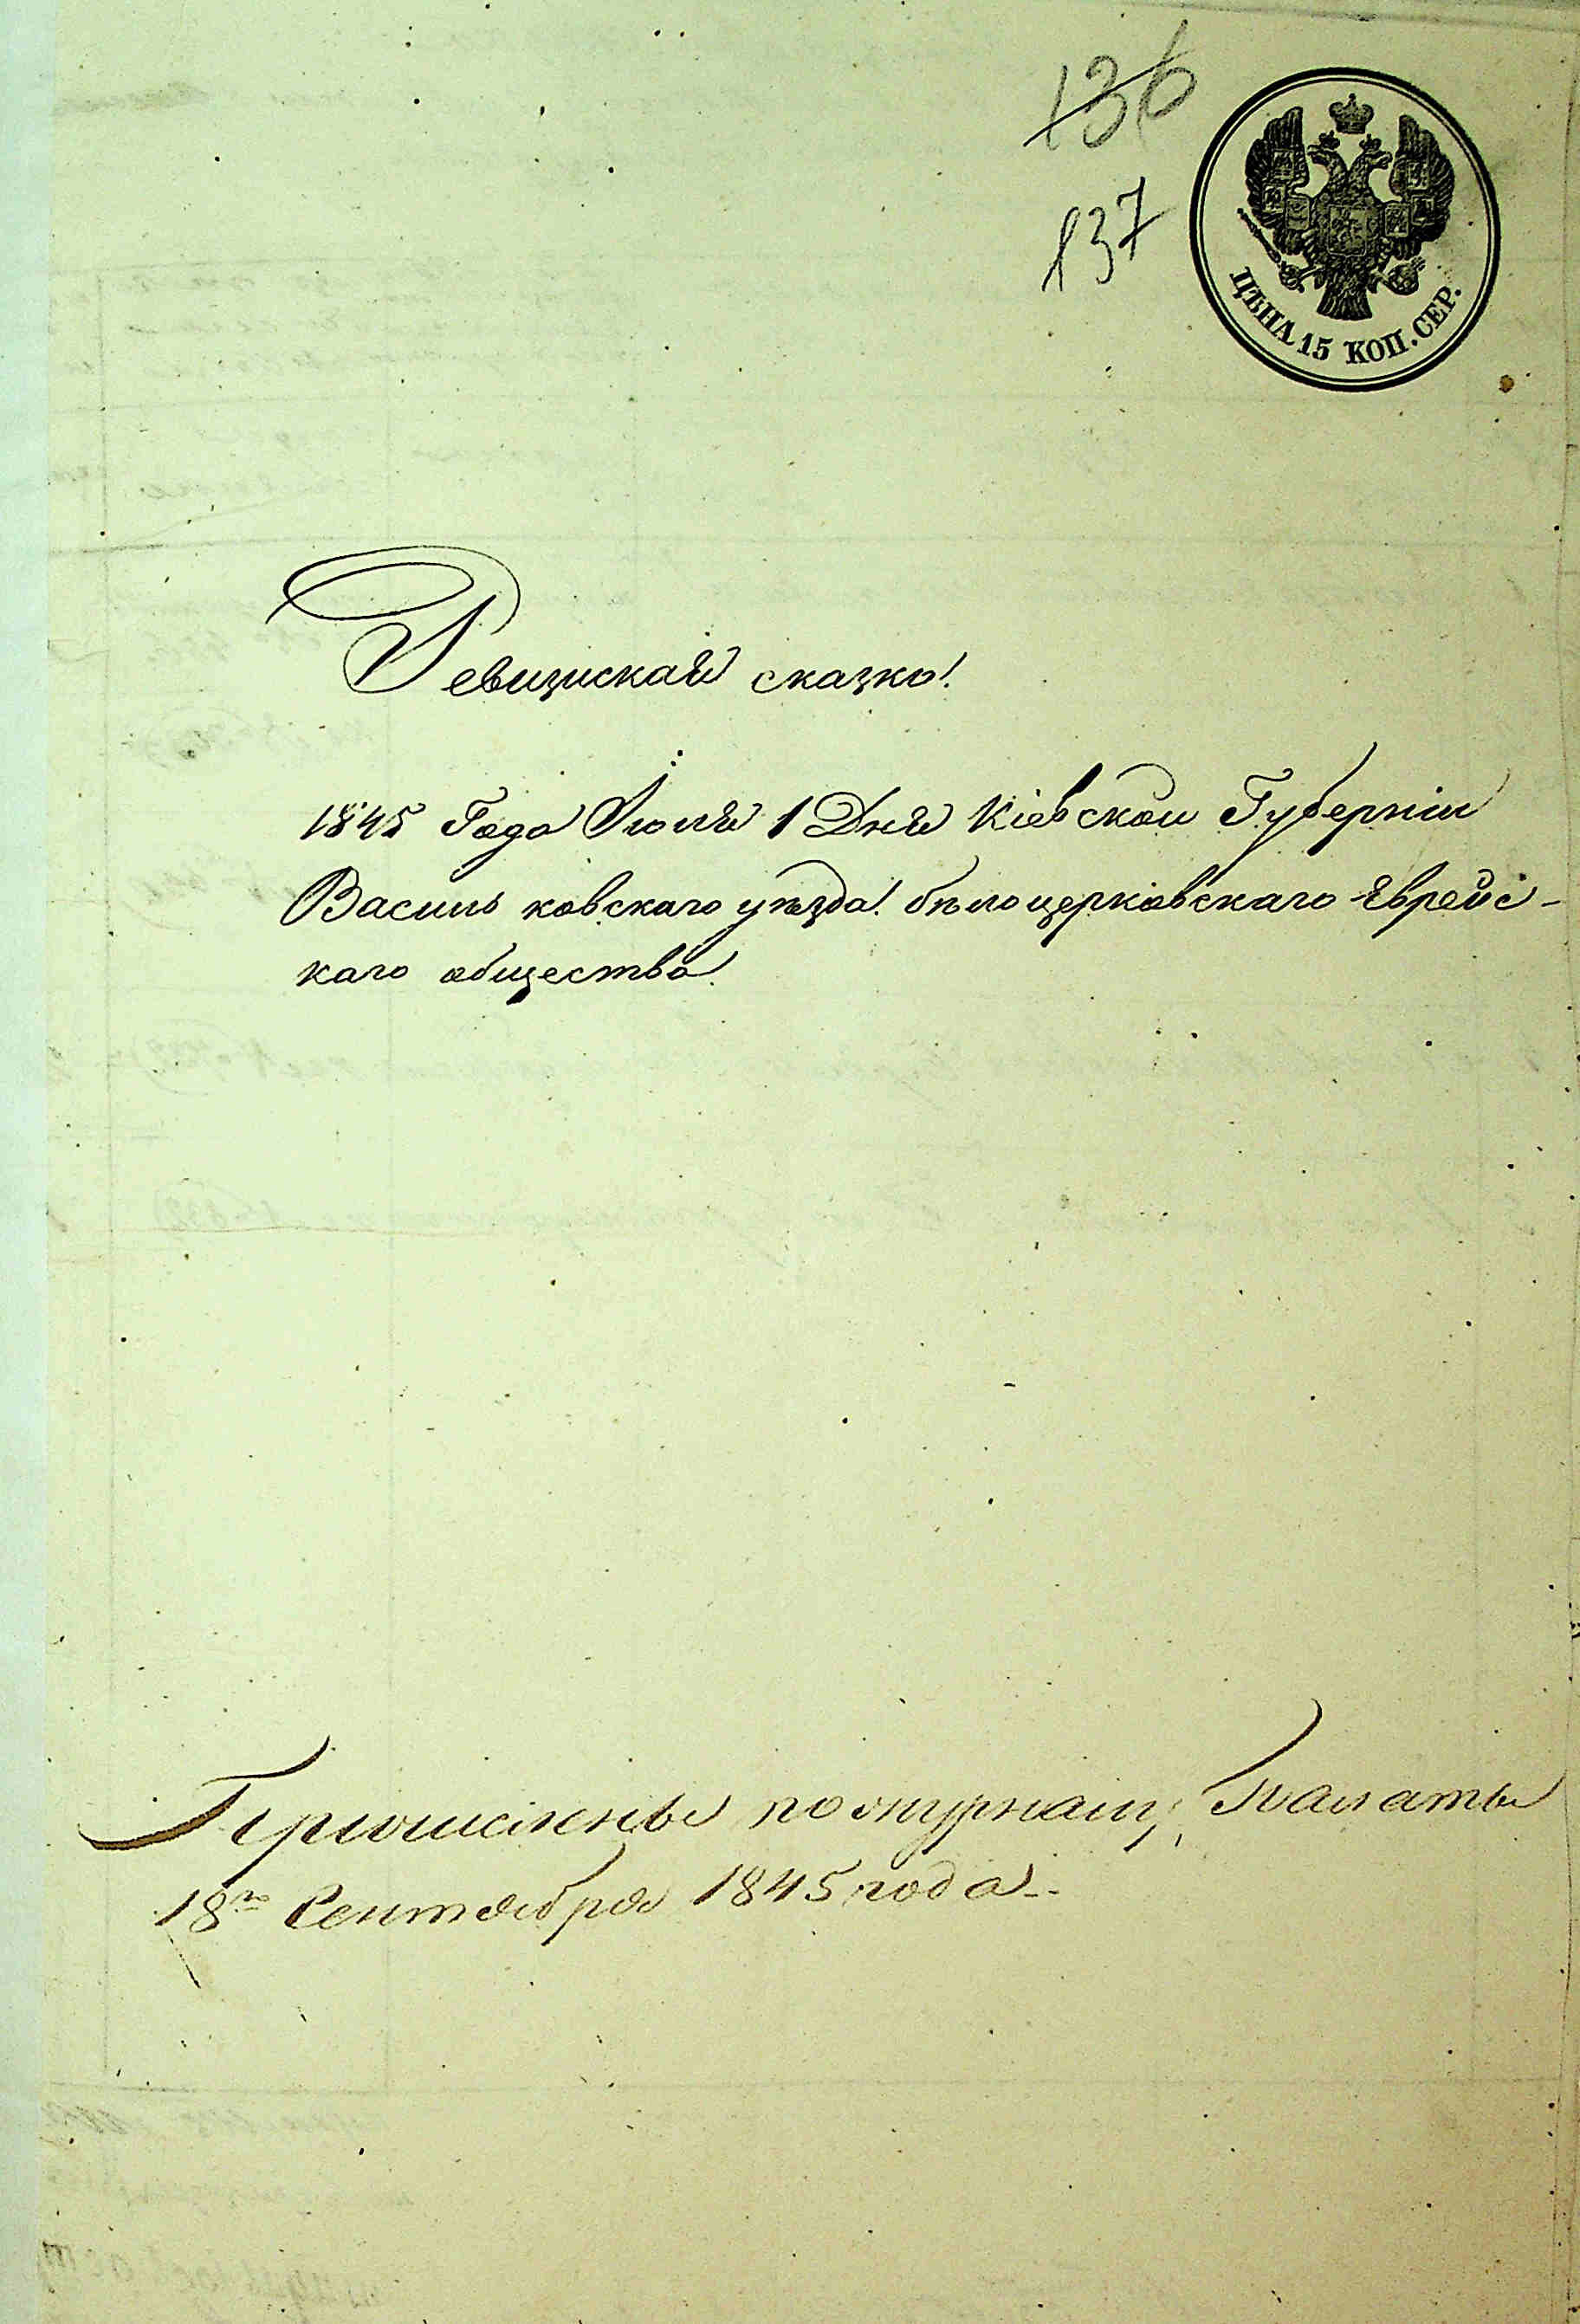 136
137
ЦѢНА 15 КОП. СЕР.
Ревизская сказка
1845 Года Июля 1 Дня Кіевской Губерніи
Василь ковскаго уѣзда бѣлоцерковскаго Еврейс-
каго общества
по журналу Палаты
18го Сентября 1845 года